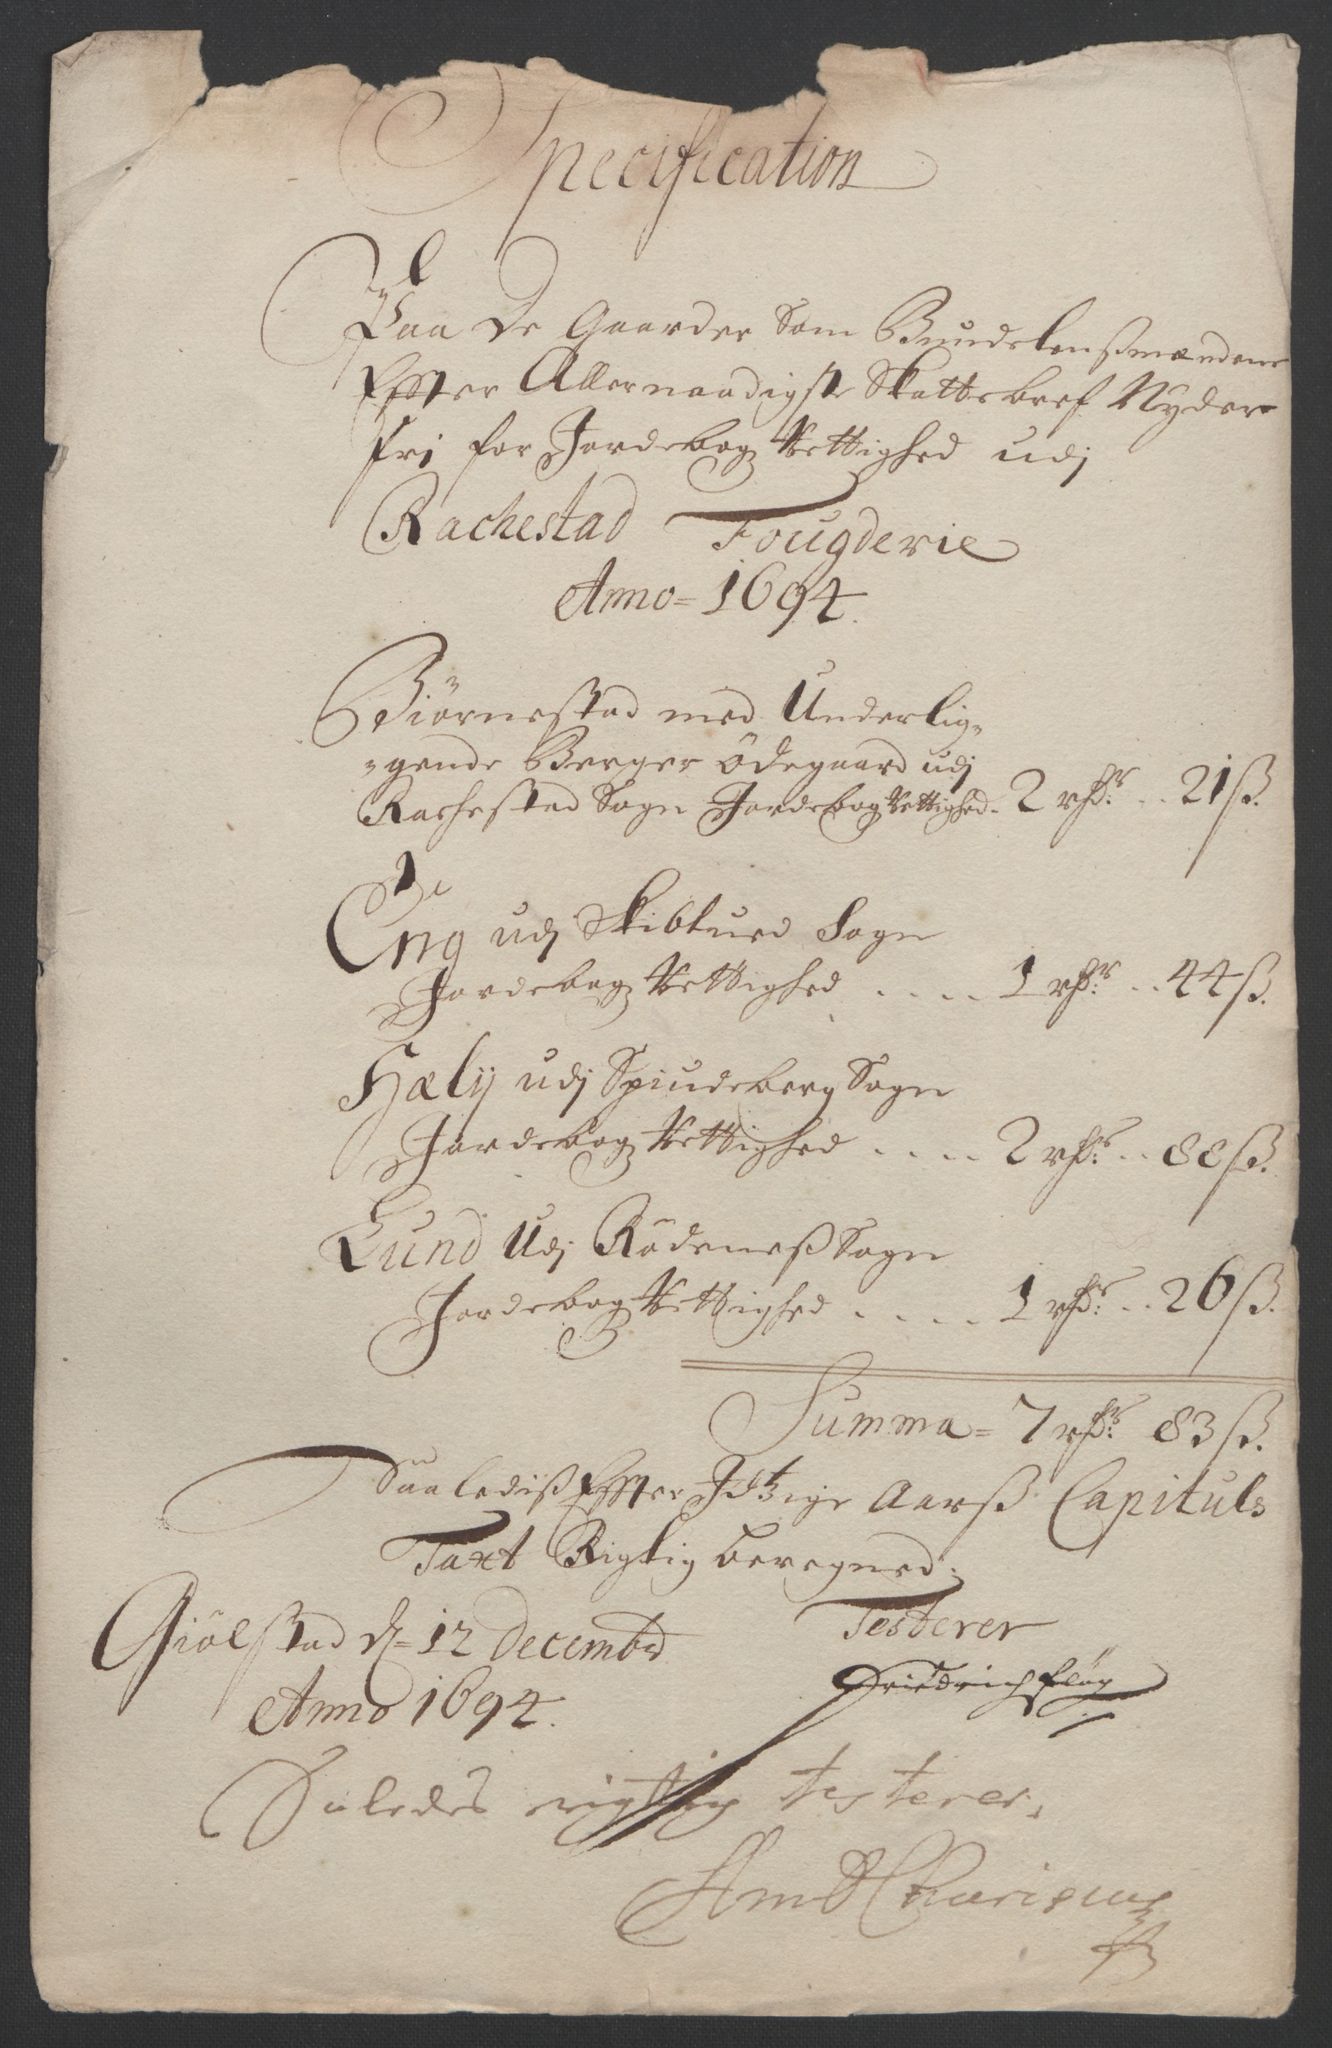 Specification
Paa de Gaarder som Bundelensmændene
Effter Allernaadigste Skattebref Nyder
fri for Jordebog Rettighed udj
Rachestad Fougderie
Anno = 1694.
Biörnestad med Underlig=
=gende Berger Ödegaard udj
Rachestad Sogn Jordebog Rettighed. 2 rdr. .. 21 ß.
Eng udj Skibtued Sogn
Jordebog Rettighed .... 1 rdr. .. 44 ß.
Hæly udj Spiudeberg Sogn
Jordebog Rettighed .... 2 rdr. .. 88 ß.
Lund Udj Rödeneß Sogn
Jordebog Rettighed .... 1 rdr. .. 26 ß.
Summa = 7 rdr. 83 ß.
Saalediß Effter Jtzige Aarß Capituls
Taxt Rigtig beregned.
Giölstad d = 12 Decembr
Testerer
Anno 1694.
Friedrich
Suledes rigttig testerer,